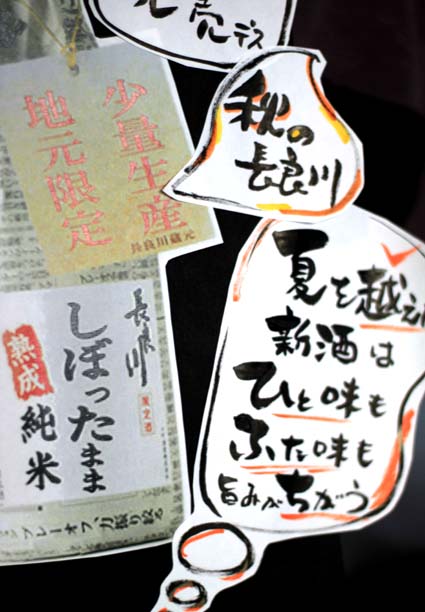 売デス
秋の
長良川
少量生産
地元限定
長良川蔵元
夏を越え
新酒は
ひと味も
ふた味も
旨みがちがう
長良川
しぼったまま
熟成
純米